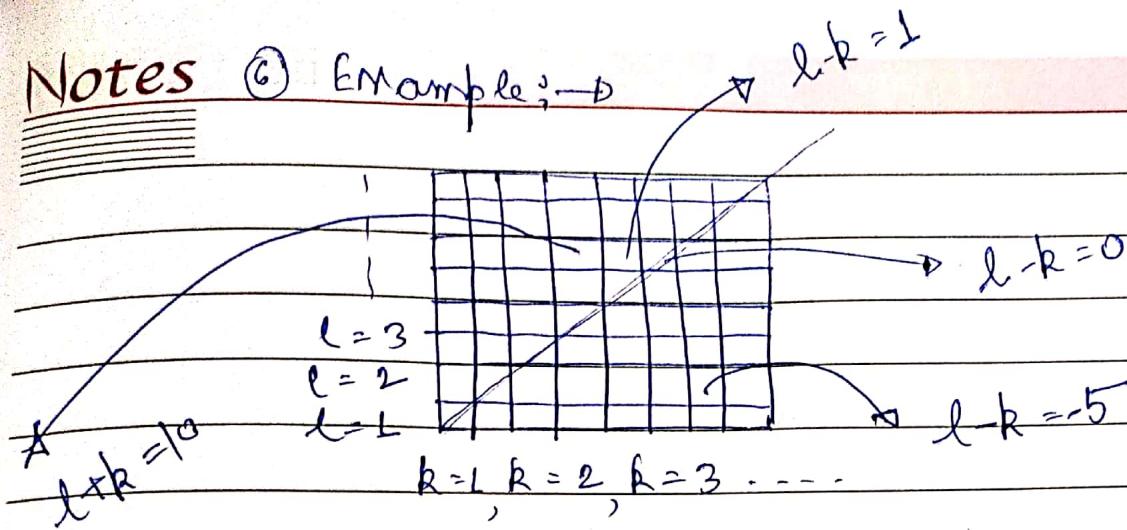 Notes ⑥ Example :→
l-k=1
l-k=0
l=3
l=2
l=1
l-k=-5
l+k=10
k=1, k=2, k=3 ....